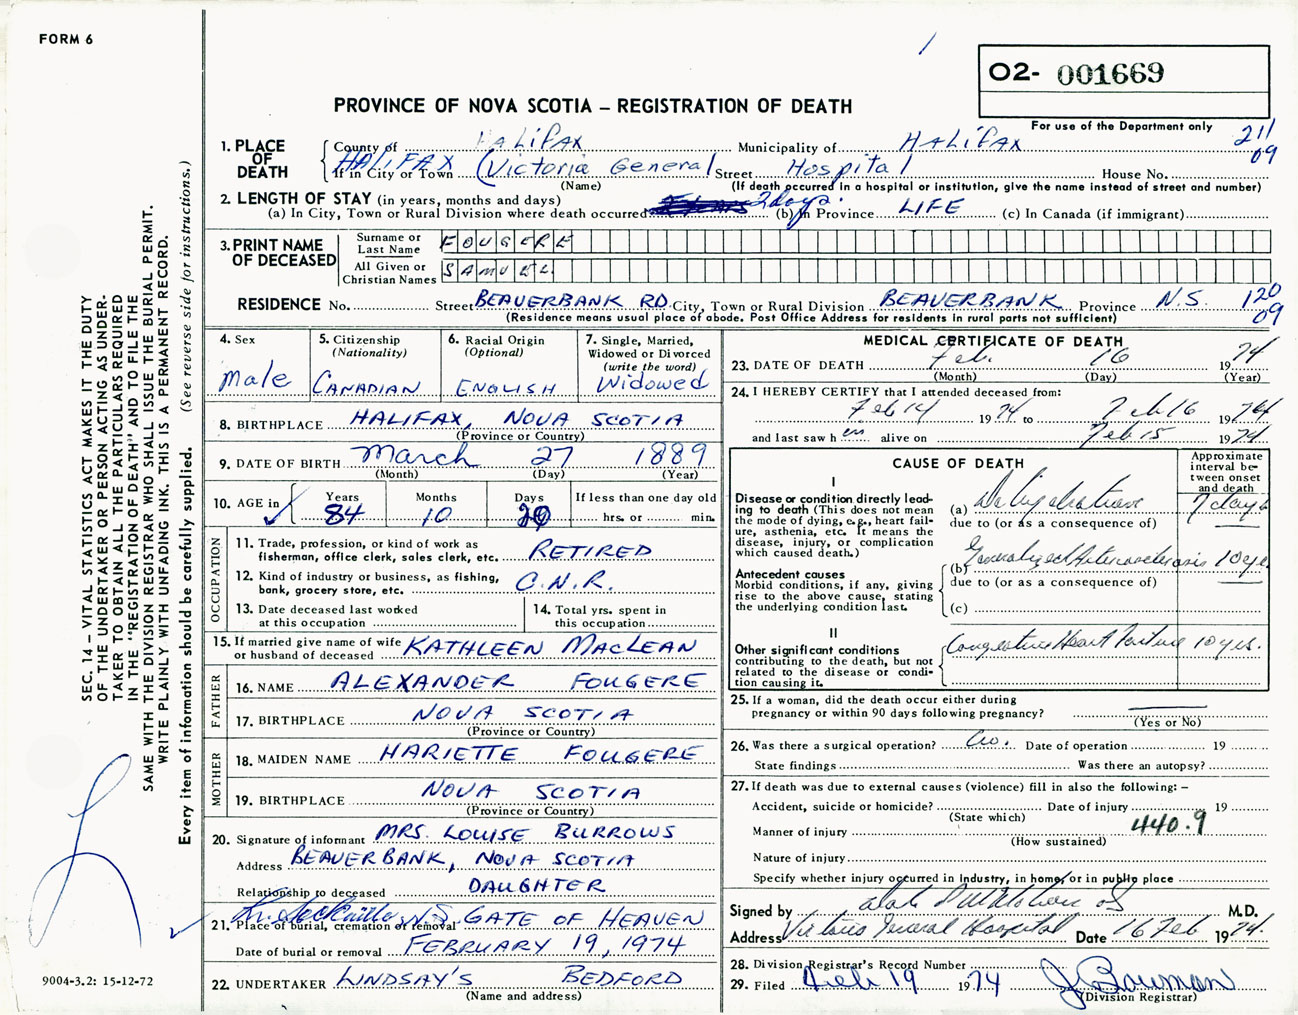 FORM 6
02- 001669
PROVINCE OF NOVA SCOTIA – REGISTRATION OF DEATH
For use of the Department only
211
09
1. PLACE OF DEATH
County of HALIFAX Municipality of HALIFAX
If in City or Town HALIFAX (Victoria General Street Hospital House No.
(Name) (If death occurred in a hospital or institution, give the name instead of street and number)
2. LENGTH OF STAY (in years, months and days)
(a) In City, Town or Rural Division where death occurred 2 days. (b) In Province LIFE (c) In Canada (if immigrant)
3. PRINT NAME OF DECEASED
Surname or Last Name FOUGERE
All Given or Christian Names SAMUEL
RESIDENCE No. Street BEAVERBANK RD. City, Town or Rural Division BEAVERBANK Province N.S. 120
09
(Residence means usual place of abode. Post Office Address for residents in rural parts not sufficient)
4. Sex
Male
5. Citizenship
(Nationality)
CANADIAN
6. Racial Origin
(Optional)
ENGLISH
7. Single, Married,
Widowed or Divorced
(write the word)
Widowed
8. BIRTHPLACE HALIFAX, NOVA SCOTIA
(Province or Country)
9. DATE OF BIRTH March 27 1889
(Month) (Day) (Year)
10. AGE in
Years Months Days If less than one day old
84 10 20 hrs. or min.
OCCUPATION
11. Trade, profession, or kind of work as
fisherman, office clerk, sales clerk, etc. RETIRED
12. Kind of industry or business, as fishing,
bank, grocery store, etc. C.N.R.
13. Date deceased last worked
at this occupation
14. Total yrs. spent in
this occupation
15. If married give name of wife
or husband of deceased KATHLEEN MACLEAN
FATHER
16. NAME ALEXANDER FOUGERE
17. BIRTHPLACE NOVA SCOTIA
(Province or Country)
MOTHER
18. MAIDEN NAME HARIETTE FOUGERE
19. BIRTHPLACE NOVA SCOTIA
(Province or Country)
20. Signature of informant MRS. LOUISE BURROWS
Address BEAVERBANK, NOVA SCOTIA
Relationship to deceased DAUGHTER
21. Place of burial, cremation or removal N.S. GATE OF HEAVEN
Date of burial or removal FEBRUARY 19, 1974
22. UNDERTAKER LINDSAY'S BEDFORD
(Name and address)
MEDICAL CERTIFICATE OF DEATH
23. DATE OF DEATH Feb. 16 1974
(Month) (Day) (Year)
24. I HEREBY CERTIFY that I attended deceased from:
Feb 14 1974 to Feb 16 1974
and last saw h im alive on Feb 15 1974
CAUSE OF DEATH
Approximate
interval be-
tween onset
and death
I
Disease or condition directly lead-
ing to death (This does not mean
the mode of dying, e.g., heart fail-
ure, asthenia, etc. It means the
disease, injury, or complication
which caused death.)
(a) Dehydration 7 days
due to (or as a consequence of)
Antecedent causes
Morbid conditions, if any, giving
rise to the above cause, stating
the underlying condition last.
(b) Generalized Arteriosclerosis 10 yrs.
due to (or as a consequence of)
(c)
II
Other significant conditions
contributing to the death, but not
related to the disease or condi-
tion causing it.
Congestive Heart Failure 10 yrs.
25. If a woman, did the death occur either during
pregnancy or within 90 days following pregnancy?
(Yes or No)
26. Was there a surgical operation? No. Date of operation 19
State findings Was there an autopsy?
27. If death was due to external causes (violence) fill in also the following: –
Accident, suicide or homicide? Date of injury 19
(State which)
Manner of injury 440.9
(How sustained)
Nature of injury
Specify whether injury occurred in industry, in home, or in public place
Signed by M.D.
Address Victoria General Hospital Date 16 Feb 1974.
28. Division Registrar's Record Number
29. Filed Feb 19 1974 J. Bowman
(Division Registrar)
SEC. 14 – VITAL STATISTICS ACT MAKES IT THE DUTY
OF THE UNDERTAKER OR PERSON ACTING AS UNDER-
TAKER TO OBTAIN ALL THE PARTICULARS REQUIRED
IN THE "REGISTRATION OF DEATH" AND TO FILE THE
SAME WITH THE DIVISION REGISTRAR WHO SHALL ISSUE THE BURIAL PERMIT.
WRITE PLAINLY WITH UNFADING INK. THIS IS A PERMANENT RECORD.
Every item of information should be carefully supplied. (See reverse side for instructions.)
9004-3.2: 15-12-72